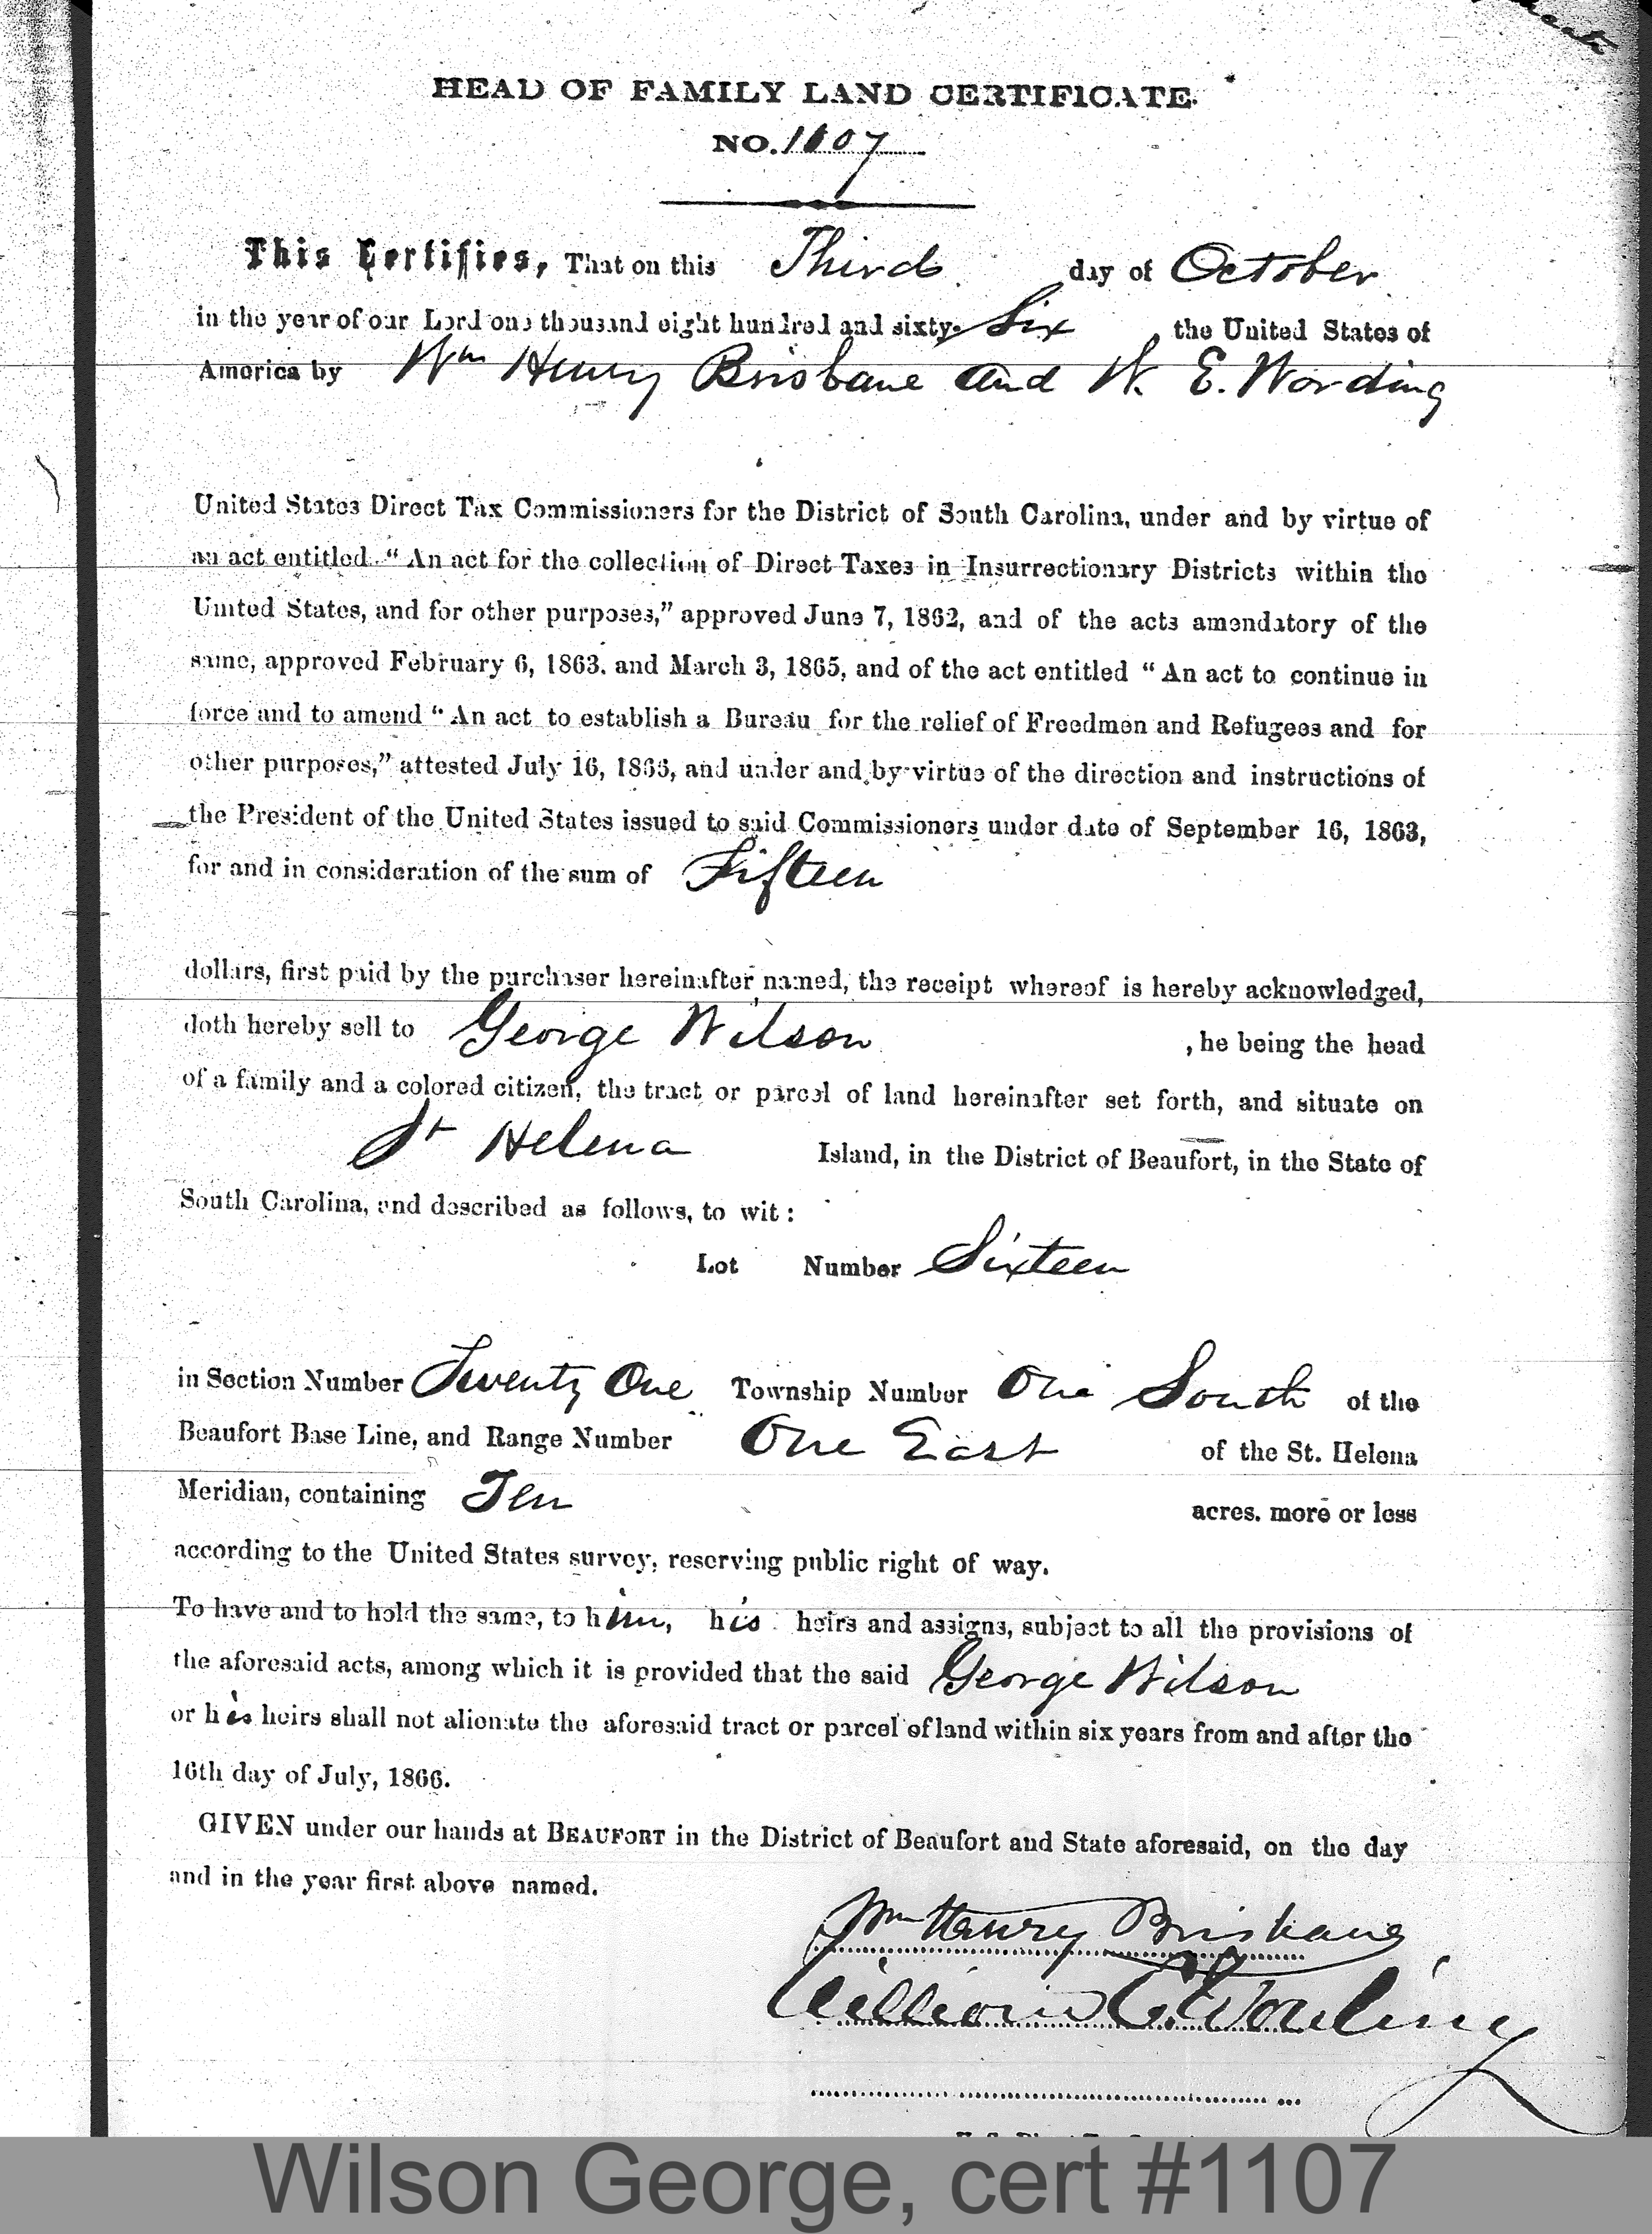 HEAD OF FAMILY LAND CERTIFICATE.
NO. 1107
This Certifies, That on this Third day of October
in the year of our Lord one thousand eight hundred and sixty-Six, the United States of
America by Wm Henry Brisbane and W. E. Wording
United States Direct Tax Commissioners for the District of South Carolina, under and by virtue of
an act entitled "An act for the collection of Direct Taxes in Insurrectionary Districts within the
United States, and for other purposes," approved June 7, 1862, and of the acts amendatory of the
same, approved February 6, 1863, and March 3, 1865, and of the act entitled "An act to continue in
force and to amend "An act to establish a Bureau for the relief of Freedmen and Refugees and for
other purposes," attested July 16, 1866, and under and by virtue of the direction and instructions of
the President of the United States issued to said Commissioners under date of September 16, 1863,
for and in consideration of the sum of Fifteen
dollars, first paid by the purchaser hereinafter named, the receipt whereof is hereby acknowledged,
doth hereby sell to George Wilson, he being the head
of a family and a colored citizen, the tract or parcel of land hereinafter set forth, and situate on
St Helena Island, in the District of Beaufort, in the State of
South Carolina, and described as follows, to wit:
Lot Number Sixteen
in Section Number Twenty One Township Number One South of the
Beaufort Base Line, and Range Number One East of the St. Helena
Meridian, containing Ten acres. more or less
according to the United States survey, reserving public right of way.
To have and to hold the same, to him, his heirs and assigns, subject to all the provisions of
the aforesaid acts, among which it is provided that the said George Wilson
or his heirs shall not alienate the aforesaid tract or parcel of land within six years from and after the
16th day of July, 1866.
GIVEN under our hands at BEAUFORT in the District of Beaufort and State aforesaid, on the day
and in the year first above named.
Wm Henry Brisbane
William E. Wording
Wilson George, cert #1107